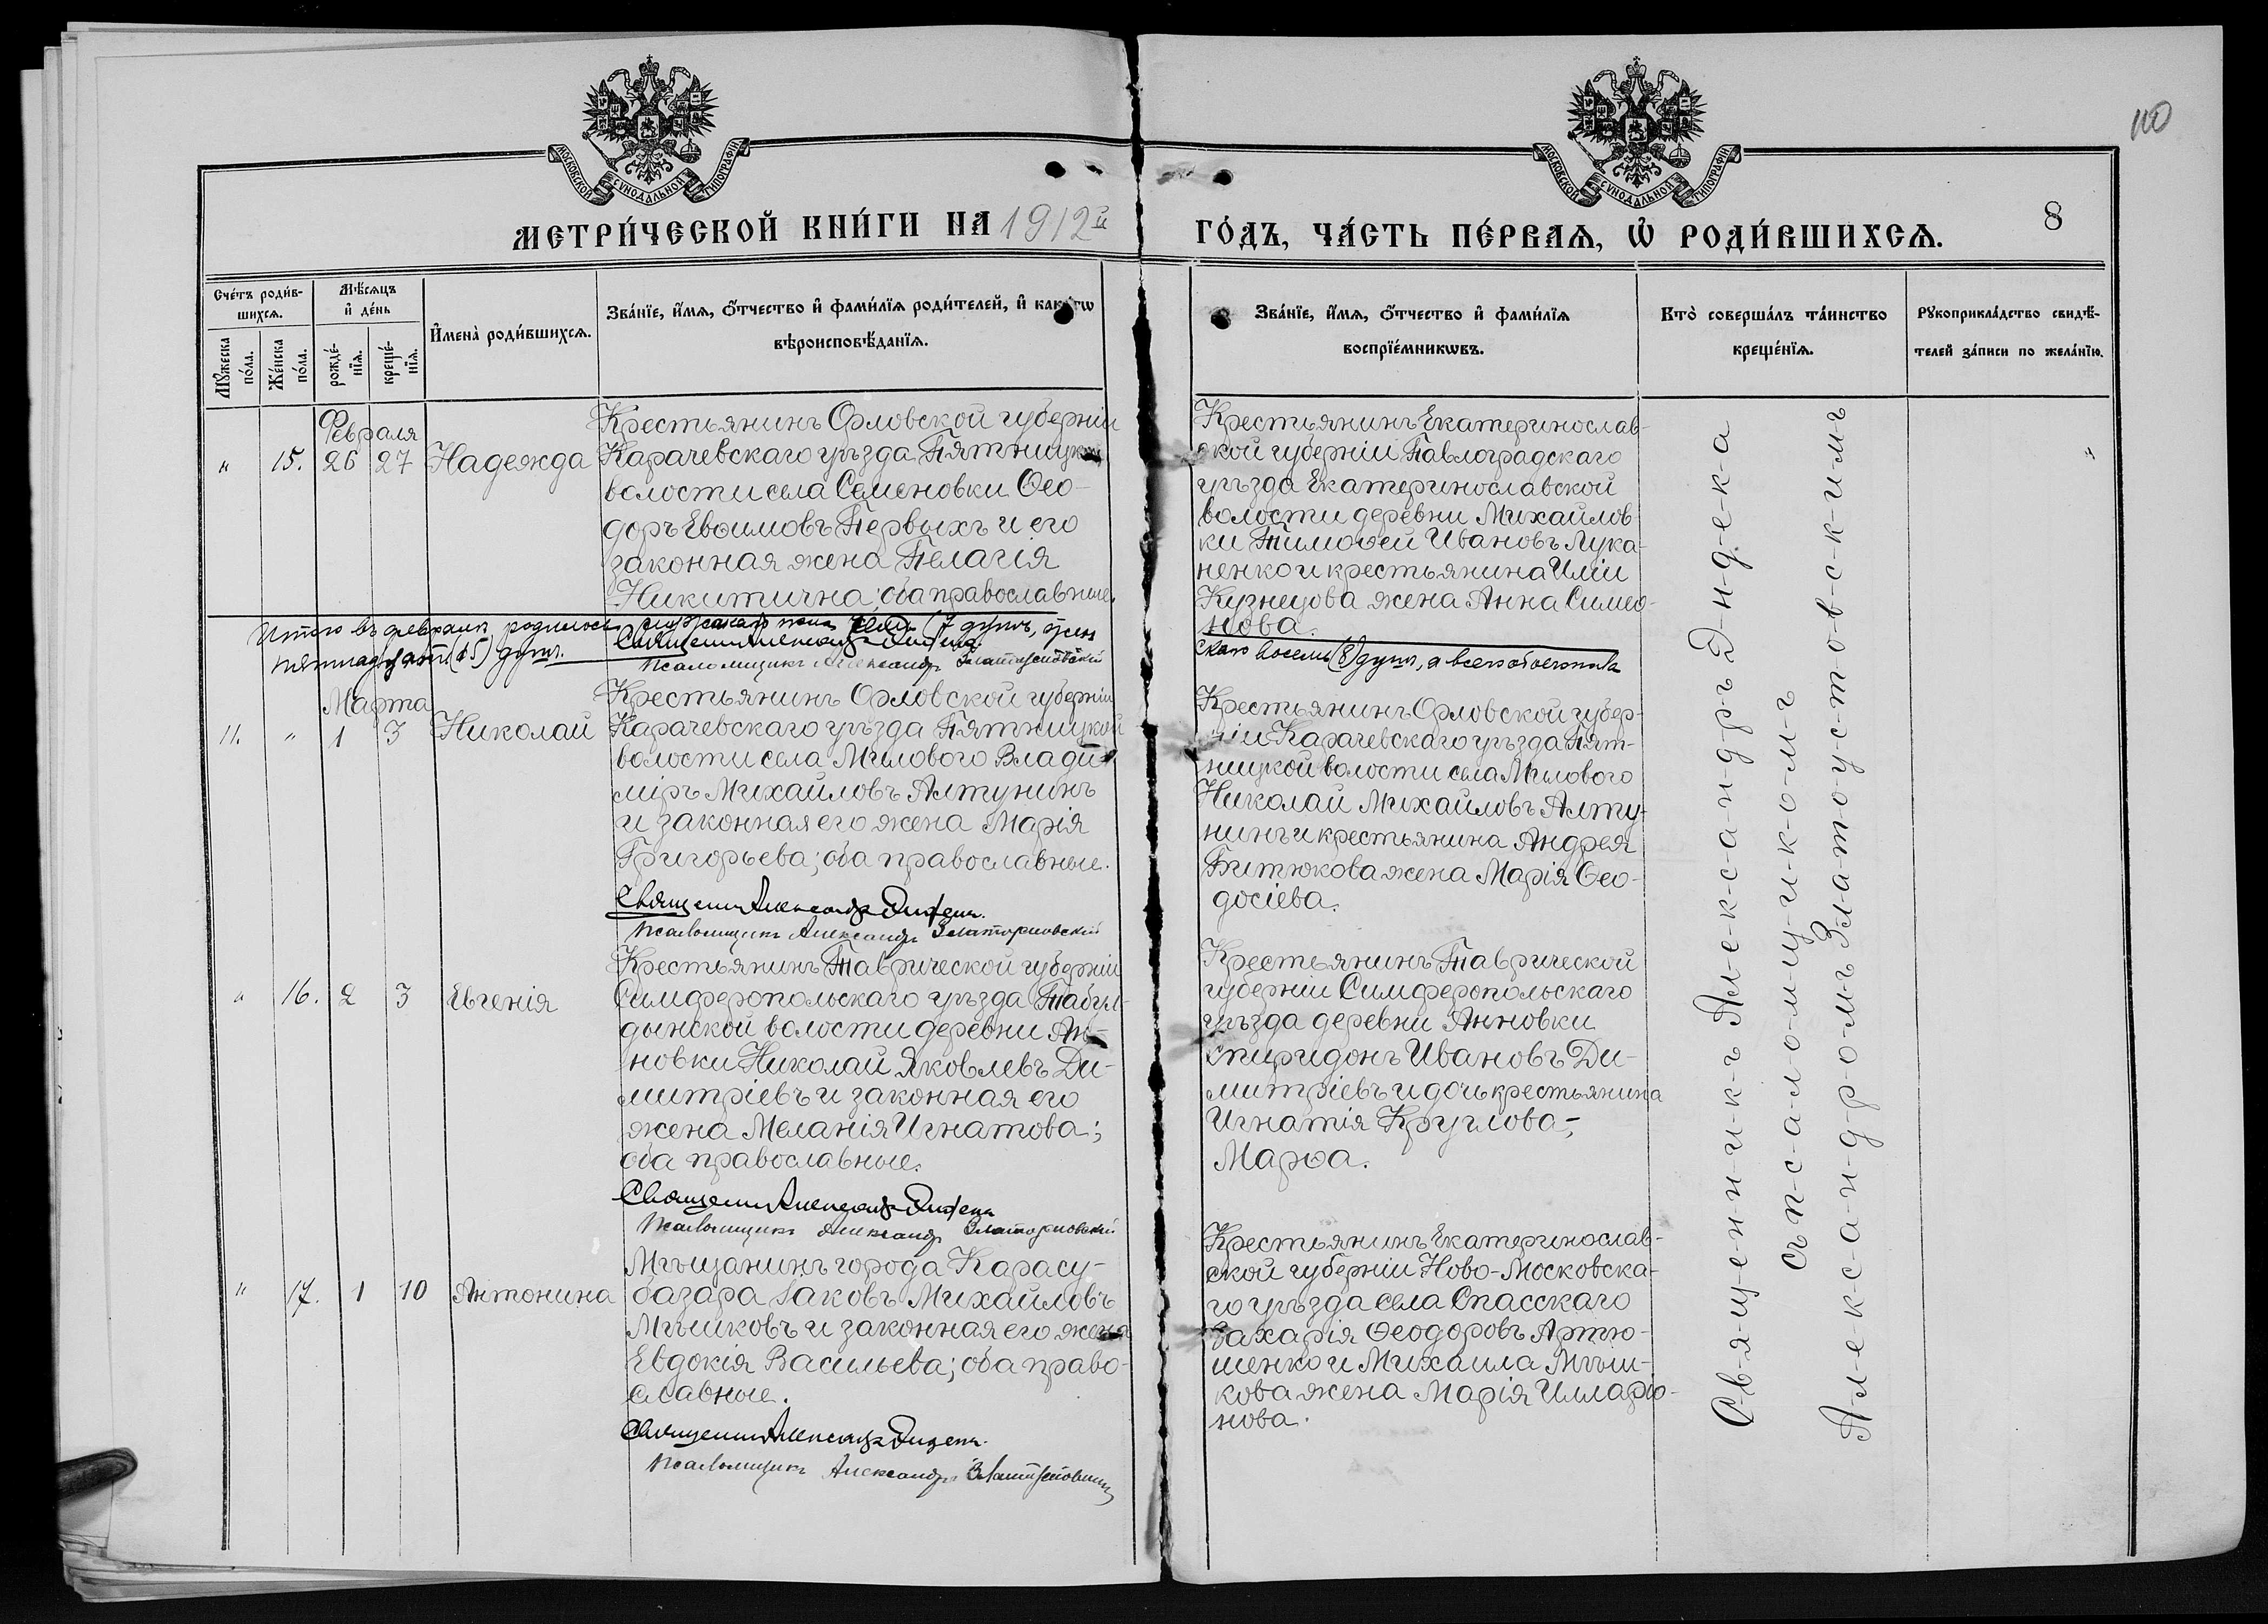 110
МОСКОВСКОЙ СѴНОДАЛЬНОЙ ТИПОГРАФІИ
МОСКОВСКОЙ СѴНОДАЛЬНОЙ ТИПОГРАФІИ
МЕТРИ́ЧЕСКОЙ КНИ́ГИ НА 1912й
ГО́ДЪ, ЧА́СТЬ ПЕ́РВАѦ, Ѡ҆ РОДИ́ВШИХСѦ.
8
Сче́тъ роди́в-
шихсѧ.
Мꙋ́жеска по́ла.
Же́нска по́ла.
Мѣ́сѧцъ
и҆ де́нь
рожде́-
нїѧ.
креще́-
нїѧ.
И҆мена̀ роди́вшихсѧ.
Зва́нїе, и҆́мѧ, ѻ҆́тчество и҆ фами́лїѧ роди́телей, и҆ како́гѡ
вѣроисповѣ́данїѧ.
Зва́нїе, и҆́мѧ, ѻ҆́тчество и҆ фами́лїѧ
воспрїе́мникѡвъ.
Кто̀ соверша́лъ та́инство
креще́нїѧ.
Рꙋкоприкла́дство свидѣ́-
телей за́писи по жела́нїю.
Февраля
" 15. 26 27 Надежда
Крестьянинъ Орловской губерніи
Карачевскаго уѣзда Пятницкой
волости села Семеновки Ѳео-
доръ Евѳимовъ Первыхъ и его
законная жена Пелагія
Никитична; оба православные.
Крестьянинъ Екатеринослав-
ской губерніи Павлоградскаго
уѣзда Екатеринославской
волости деревни Михайлов-
ки Тимоѳей Ивановъ Лука-
ненко и крестьянина Иліи
Кузнецова жена Анна Симео-
нова.
"
Итого въ февралѣ родилось мужскаго пола семь (7) душъ, жен
скаго восемь (8) душъ, а всего обоего пола
пятнадцать (15) душъ.
Священникъ Александръ Диндека
Псаломщикъ Александръ Златоустовскій
Марта
11. " 1 3 Николай
Крестьянинъ Орловской губерніи
Карачевскаго уѣзда Пятницкой
волости села Милового Влади-
міръ Михайловъ Алтунинъ
и законная его жена Марія
Григорьева; оба православные.
Священникъ Александръ Диндека
Псаломщикъ Александръ Златоустовскій
Крестьянинъ Орловской губер-
ніи Карачевскаго уѣзда Пят-
ницкой волости села Милового
Николай Михайловъ Алту-
нинъ и крестьянина Андрея
Битюкова жена Марія Ѳео-
досіева.
" 16. 2 3 Евгенія
Крестьянинъ Таврической губерніи
Симферопольскаго уѣзда Табул-
дынской волости деревни Ан-
новки Николай Яковлевъ Ди-
митріевъ и законная его
жена Меланія Игнатова;
оба православные.
Священникъ Александръ Диндека
Псаломщикъ Александръ Златоустовскій
Крестьянинъ Таврической
губерніи Симферопольскаго
уѣзда деревни Анновки
Спиридонъ Ивановъ Ди-
митріевъ и дочь крестьянина
Игнатія Круглова-,
Марѳа.
" 17. 1 10 Антонина
Мѣщанинъ города Карасу-
базара Іаковъ Михайловъ
Мѣшковъ и законная его жена
Евдокія Васильева; оба право-
славные.
Священникъ Александръ Диндека
Псаломщикъ Александръ Златоустовскій
Крестьянинъ Екатеринослав-
ской губерніи Ново-Московска-
го уѣзда села Спасскаго
Захарія Ѳеодоровъ Артю-
шенко и Михаила Мѣш-
кова жена Марія Илларіо-
нова.
С-в-я-щ-е-н-н-и-к-ъ А-л-е-к-с-а-н-д-р-ъ Д-и-н-д-е-к-а
съ п-с-а-л-о-м-щ-и-к-о-м-ъ
А-л-е-к-с-а-н-д-р-о-м-ъ З-л-а-т-о-у-с-т-о-в-с-к-и-м-ъ